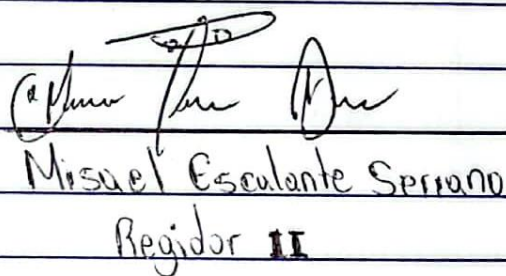 Misael Escalante Serrano
Regidor II